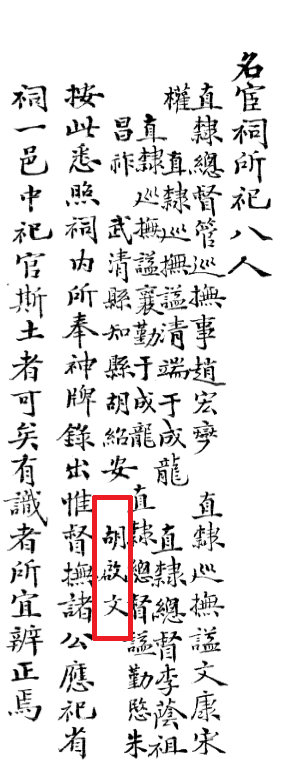 名宦祠所祀八人
直隸總督管巡撫事趙宏燮 直隸巡撫謚文康宋
權 直隸巡撫謚清端于成龍 直隸總督李蔭祖
直隸巡撫謚襄勤于成龍 直隸總督謚勤愍朱
昌祚 武清縣知縣胡紹安 胡啟文
按此悉照祠内所奉神牌錄出惟督撫諸公應祀省
祠一邑中祀官斯土者可矣有識者所宜辨正焉